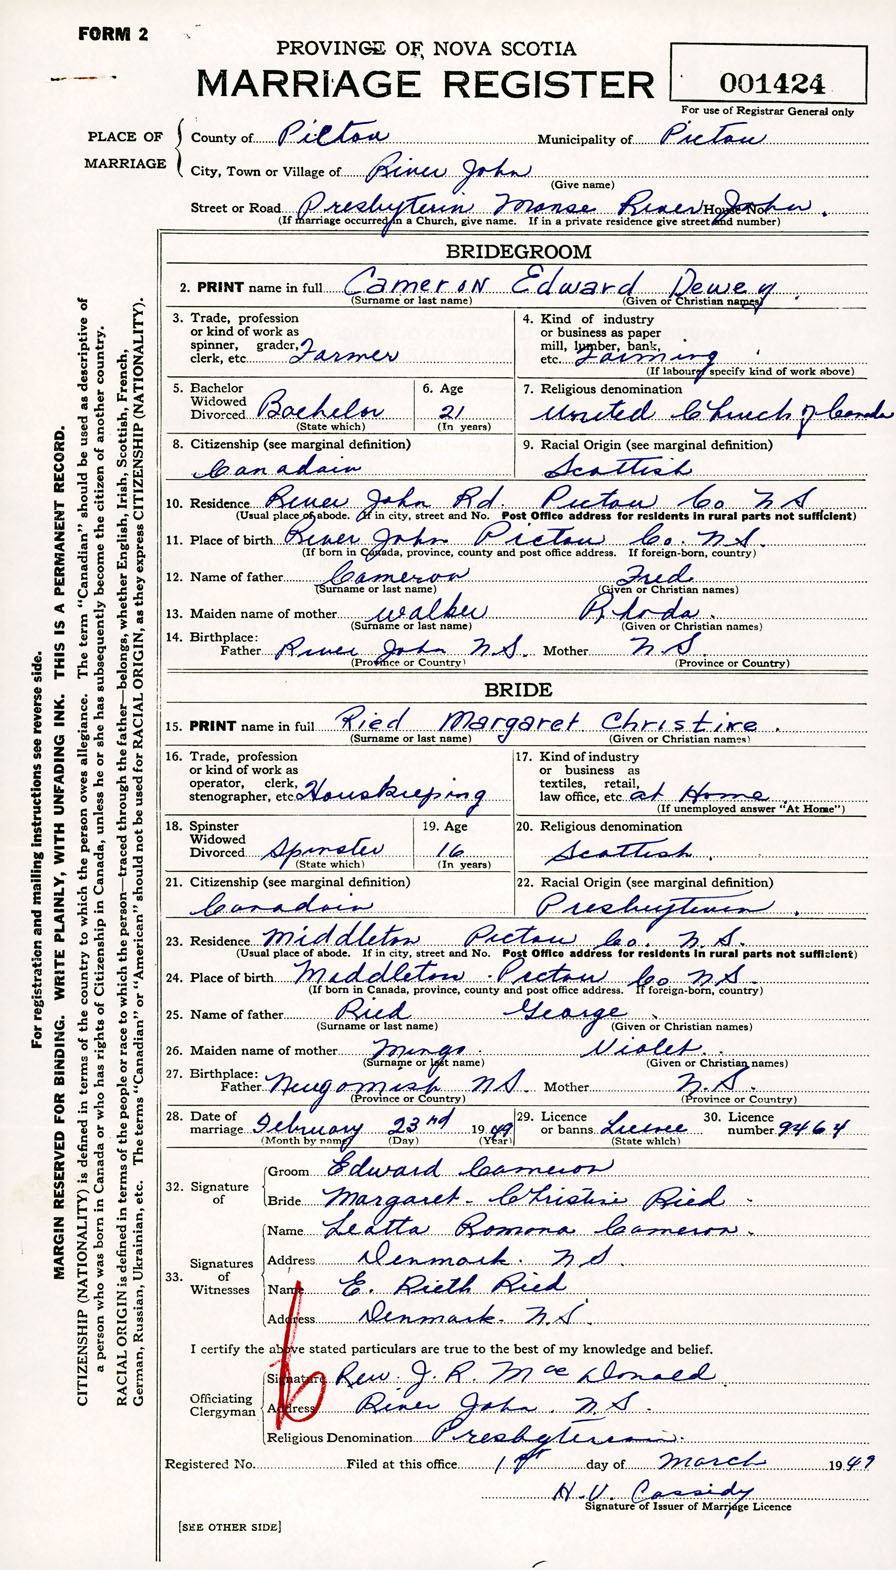 FORM 2
PROVINCE OF NOVA SCOTIA
MARRIAGE REGISTER
001424
For use of Registrar General only
PLACE OF MARRIAGE
County of Pictou Municipality of Pictou
City, Town or Village of River John
(Give name)
Street or Road Presbyterin Manse River John. House No.
(If marriage occurred in a Church, give name. If in a private residence give street and number)
BRIDEGROOM
2. PRINT name in full Cameron Edward Dewey.
(Surname or last name) (Given or Christian names)
3. Trade, profession or kind of work as spinner, grader, clerk, etc. Farmer
4. Kind of industry or business as paper mill, lumber, bank, etc. Farming
(If labourer specify kind of work above)
5. Bachelor Widowed Divorced Bachelor
(State which)
6. Age 21
(In years)
7. Religious denomination United Church of Canada
8. Citizenship (see marginal definition) Canadain
9. Racial Origin (see marginal definition) Scottish
10. Residence River John Rd. Pictou Co N S
(Usual place of abode. If in city, street and No. Post Office address for residents in rural parts not sufficient)
11. Place of birth River John Pictou Co. N.S.
(If born in Canada, province, county and post office address. If foreign-born, country)
12. Name of father Cameron Fred
(Surname or last name) (Given or Christian names)
13. Maiden name of mother Walker Rhoda.
(Surname or last name) (Given or Christian names)
14. Birthplace: Father River John N.S. Mother N.S.
(Province or Country) (Province or Country)
BRIDE
15. PRINT name in full Ried Margaret Christine.
(Surname or last name) (Given or Christian names)
16. Trade, profession or kind of work as operator, clerk, stenographer, etc. Houskeeping
17. Kind of industry or business as textiles, retail, law office, etc. at Home
(If unemployed answer "At Home")
18. Spinster Widowed Divorced Spinster
(State which)
19. Age 16
(In years)
20. Religious denomination Scottish.
21. Citizenship (see marginal definition) Canadain
22. Racial Origin (see marginal definition) Presbyterin.
23. Residence Middleton Pictou Co. N.S.
(Usual place of abode. If in city, street and No. Post Office address for residents in rural parts not sufficient)
24. Place of birth Middleton Pictou Co N.S.
(If born in Canada, province, county and post office address. If foreign-born, country)
25. Name of father Ried George
(Surname or last name) (Given or Christian names)
26. Maiden name of mother Mingo Violet.
(Surname or last name) (Given or Christian names)
27. Birthplace: Father NS. Mother N.S.
(Province or Country) (Province or Country)
28. Date of marriage February 23rd 1949
(Month by name) (Day) (Year)
29. Licence or banns License
(State which)
30. Licence number 9464
32. Signature of
Groom Edward Cameron
Bride Margaret Christine Ried
33. Signatures of Witnesses
Name Leatta Romona Cameron.
Address Denmark. N S.
Name E. Rieth Ried
Address Denmark. N.S.
I certify the above stated particulars are true to the best of my knowledge and belief.
Officiating Clergyman
Signature Rev. J. R. MacDonald
Address River John. N.S.
Religious Denomination Presbyterian.
Registered No. Filed at this office 1st day of March 1949
H. V. Cassidy
Signature of Issuer of Marriage Licence
[SEE OTHER SIDE]
For registration and mailing instructions see reverse side.
MARGIN RESERVED FOR BINDING. WRITE PLAINLY, WITH UNFADING INK. THIS IS A PERMANENT RECORD.
CITIZENSHIP (NATIONALITY) is defined in terms of the country to which the person owes allegiance. The term "Canadian" should be used as descriptive of
a person who was born in Canada or who has rights of Citizenship in Canada, unless he or she has subsequently become the citizen of another country.
RACIAL ORIGIN is defined in terms of the people or race to which the person—traced through the father—belongs, whether English, Irish, Scottish, French,
German, Russian, Ukrainian, etc. The terms "Canadian" or "American" should not be used for RACIAL ORIGIN, as they express CITIZENSHIP (NATIONALITY).